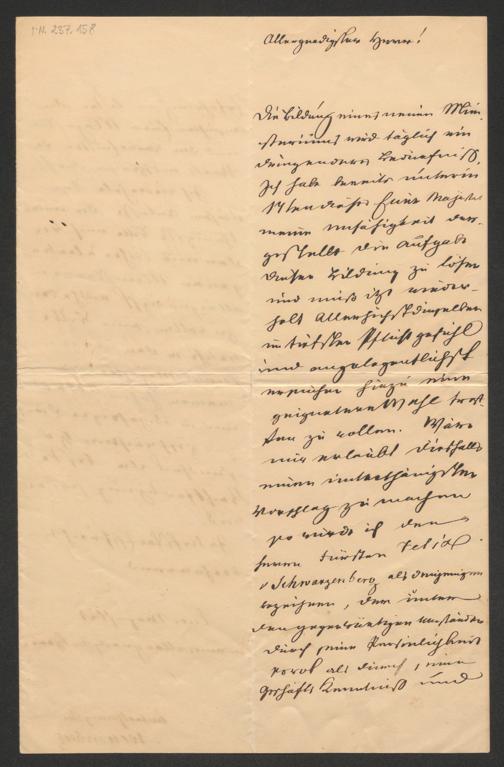 I.N. 237.158
Allergnädigster Herr!
Die Bildung eines neuen Mini-
steriums wird täglich ein
dringenderes Bedürfniß.
Ich habe bereits unterm
17ten dieses Eurer Majestät
meine Unfähigkeit dar-
gestellt die Aufgabe
dieser Bildung zu lösen
und muß itzt wieder-
holt Allerhöchstdieselben
im tiefsten Pflichtgefühl
und angelegentlichst
ersuchen hiezu eine
geeignetere Wahl tref-
fen zu wollen. Wäre
mir erlaubt dießfalls
einen unterthänigsten
Vorschlag zu machen
so würde ich den
Herrn Fürsten Felix
v Schwarzenberg als denjenigen
bezeichnen, der unter
den gegenwärtigen Umständen
durch seine Persönlichkeit
sowol als durch seine
Geschäfts Kenntniß und